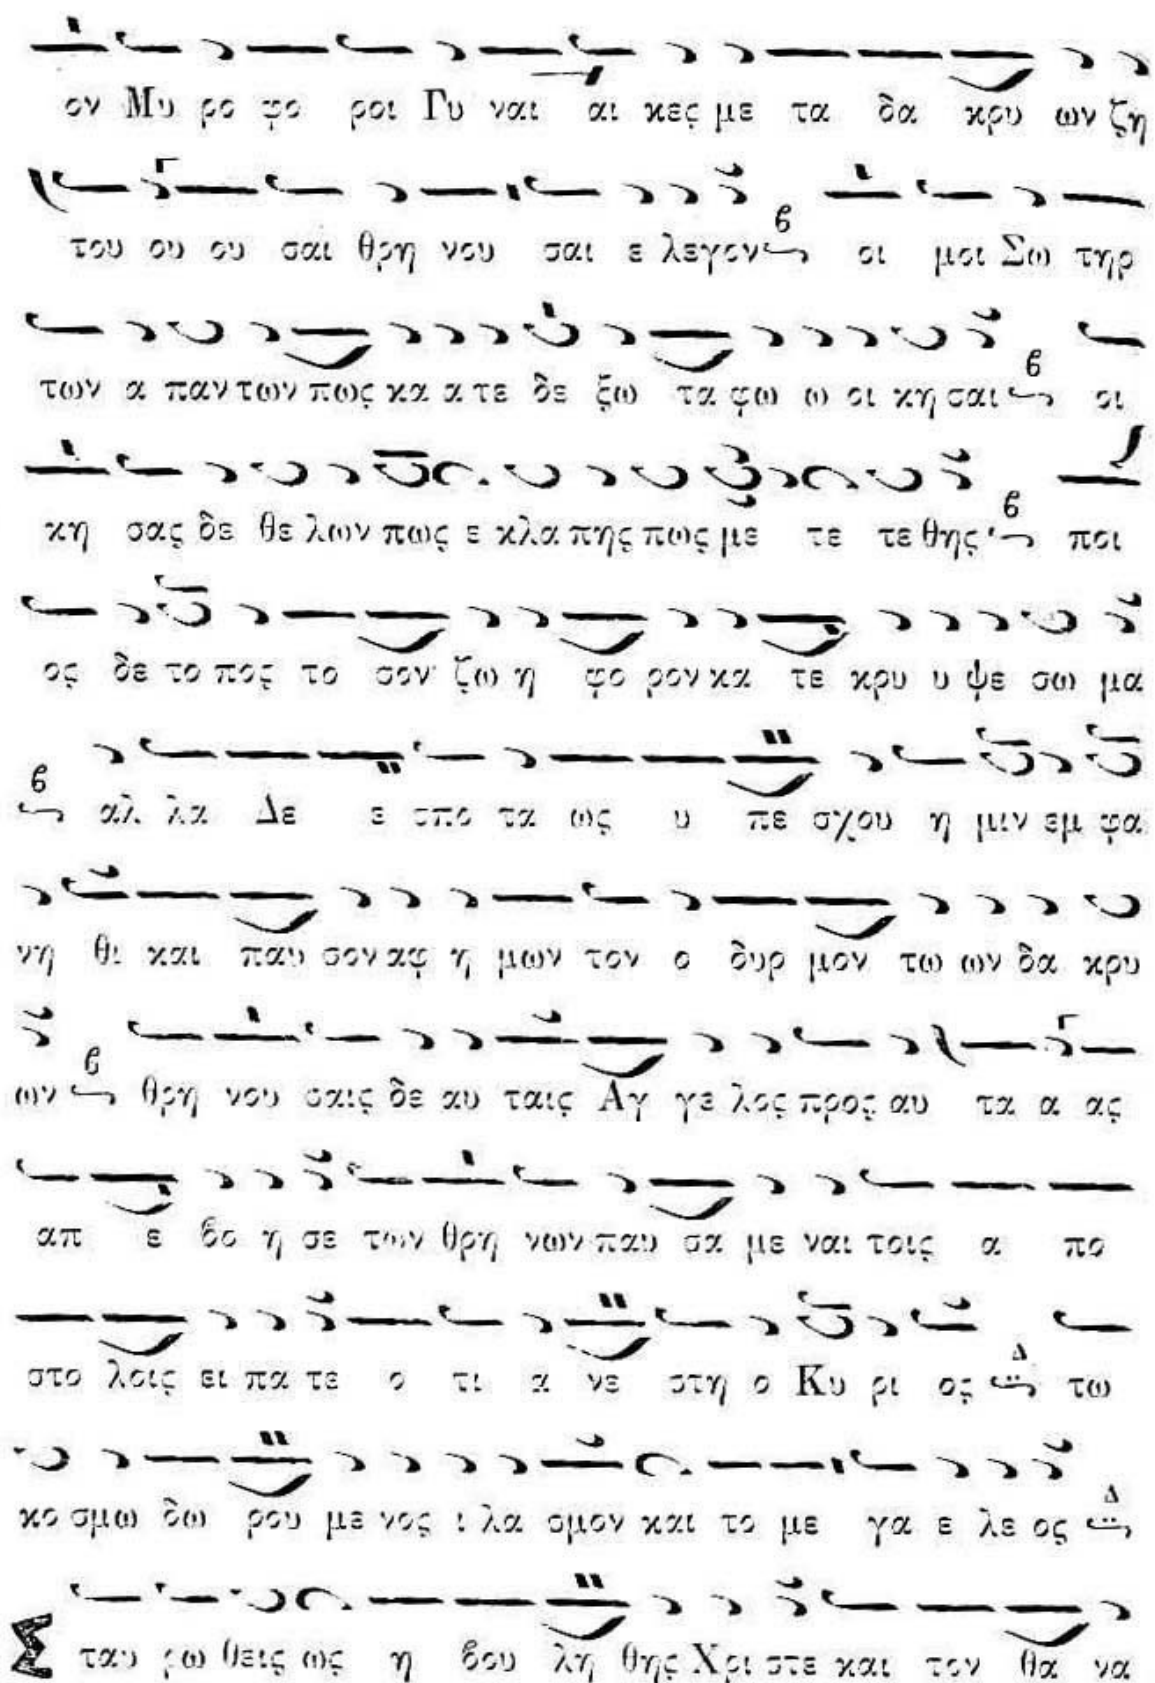 ον Μυ ρο φο ροι Γυ ναι αι κες με τα δα κρυ ων ζη
του ου ου σαι θρη νου σαι ε λεγον β οι μοι Σω τηρ
των α παν των πως κα α τε δε ξω τα φω ω οι κη σαι β οι
κη σας δε θε λων πως ε κλα πης πως με τε τε θης β ποι
ος δε το πος το σον ζω η φο ρον κα τε κρυ υ ψε σω μα
β αλ λα Δε ε σπο τα ως υ πε σχου η μιν εμ φα
νη θι και παυ σον αφ η μων τον ο δυρ μον τω ων δα κρυ
ων β θρη νου σαις δε αυ ταις Αγ γε λος προς αυ τα α ας
απ ε βο η σε των θρη νων παυ σα με ναι τοις α πο
στο λοις ει πα τε ο τι α νε στη ο Κυ ρι ος Δ τω
κο σμω δω ρου με νος ι λα σμον και το με γα ε λε ος Δ
Σ ταυ ρω θεις ως η βου λη θης Χρι στε και τον θα να